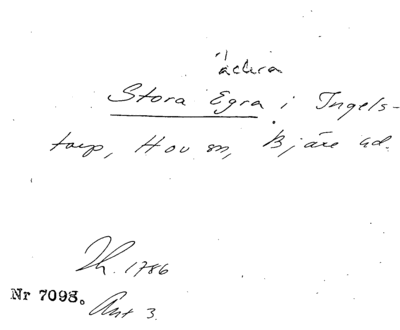 Stora Egra i Ingels-
torp, Hov sn, Bjäre hd.
1786
Nr 7098.
Ant 3.